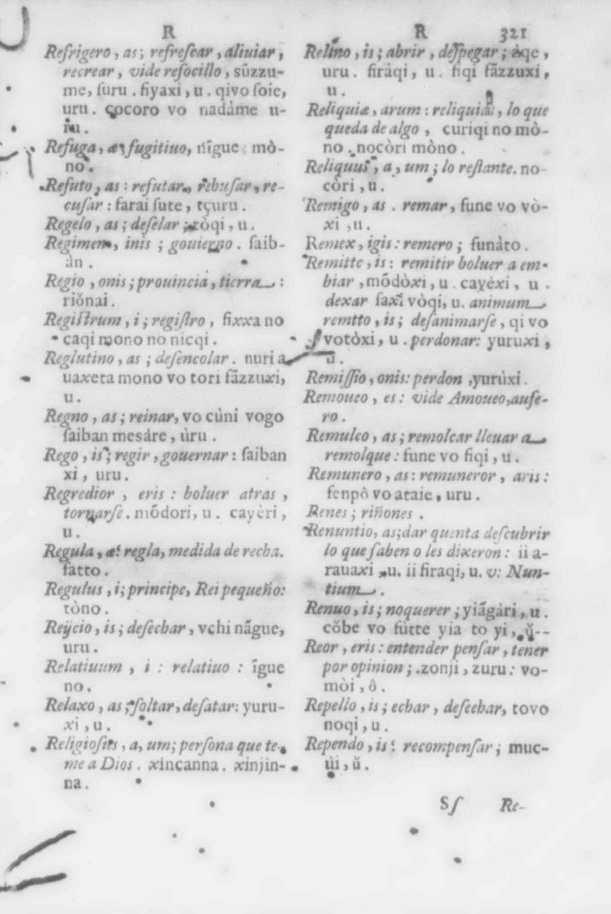 R
Refrigero, as; refrescar, aliuiar,
recrear, vide refocillo, sŭzzu-
me, suru. fiyaxi, u. qivo soie,
uru. cocoro vo nadàme u-
ru.
Refuga, æ; fugitiuo, nĩgue mò-
no.
Refuto, as: refutar, rehusar, re-
cusar: farai fute, tçuru.
Regelo, as; deselar; tòqi, u.
Regimen, inis; gouierno. saib-
àn.
Regio, onis; prouincia, tierra:
riŏnai.
Registrum, i; registro, fixxa no
caqi mono no nicqi.
Reglutino, as; desencolar. nuri a
uaxeta mono vo tori fãzzuxi,
u.
Regno, as; reinar, vo cùni vogo
saiban mesáre, ùru.
Rego, is; regir, gouernar: saiban
xi, uru.
Regredior, eris: boluer atras,
tornarse. mõdori, u. cayèri,
u.
Regula, æ: regla, medida de recha.
fatto.
Regulus, i; principe, Rei pequeño:
tòno.
Reijcio, is; desechar, vchi nãgue,
uru.
Relatiuum, i: relatiuo: ĩgue
no.
Relaxo, as; soltar, desatar: yuru-
xi, u.
Religiosus, a, um; persona que te-
me a Dios. xincanna. xinjin-
na.
R 321
Relino, is; abrir, despegar; àqe,
uru. firàqi, u. fiqi fãzzuxi,
u.
Reliquiæ, arum: reliquias, lo que
queda de algo, curiqi no mò-
no. nocòri mòno.
Reliquus, a, um; lo restante. no-
còri, u.
Remigo, as. remar, fune vo vò-
xi, u.
Remex, igis: remero; funàto.
Remitto, is: remitir boluer a em-
biar, mõdòxi, u. cayéxi, u.
dexar saxi vòqi, u. animum
remtto, is; desanimarse, qi vo
votòxi, u. perdonar: yuruxi,
u.
Remissio, onis: perdon, yurùxi.
Remoueo, es: vide Amoueo, aufe-
ro.
Remulco, as; remolcar lleuar a
remolque: fune vo fiqi, u.
Remunero, as: remuneror, aris:
fenpô vo ataie, uru.
Renes; riñones.
Renuntio, as; dar quenta descubrir
lo que saben o les dixeron: ii a-
rauaxi, u. ii firaqi, u. v: Nun-
tium.
Renuo, is; noquerer; yiãgàri, u.
cŏbe vo futte yia to yi, ŭ--
Reor, eris: entender pensar, tener
por opinion; zonji, zuru: vo-
mòi, ô.
Repello, is; echar, desechar, tovo
noqi, u.
Rependo, is: recompensar; muc-
ùi, ŭ.
Sſ Re-